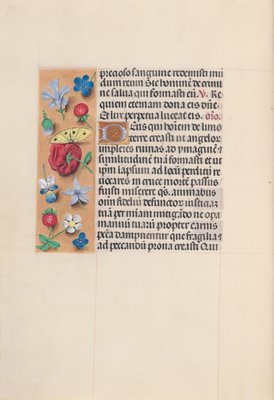 precioso sanguine redemisti mu
dum totum Sic hominē de crimi
ne salua qui formasti eū. V. Re
quiem eternam dona eis dn̄e
Et lux perpetua luceat eis. orō.
Deus qui hoīem de limo
terre creasti ut angelor
impleres ruinas ad ymaginē a
similitudinē tuā formasti et ut
ipsum lapsum ad
reuocares in cruce mortē passus
fuisti miserere qs animabus
oīm fidelium defunctor
tua per miam ope
manuū tuarū propter carnis
pctā dampnentur que fragilia
ad peccandū prona creasti Qui